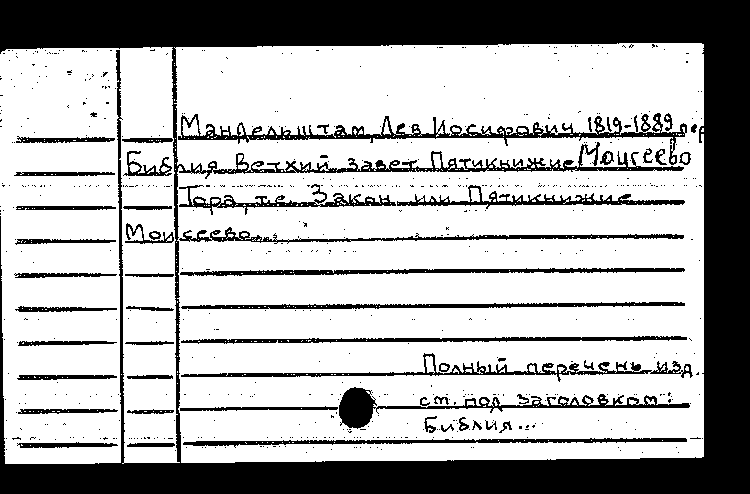 Мандельштам, Лев Иосифович, 1819-1889, пер
Библия. Ветхий завет. Пятикнижие Моисеево
Тора, т.е. Закон или Пятикнижие
Моисеево...
Полный перечень изд.
см. под заголовком:
Библия...